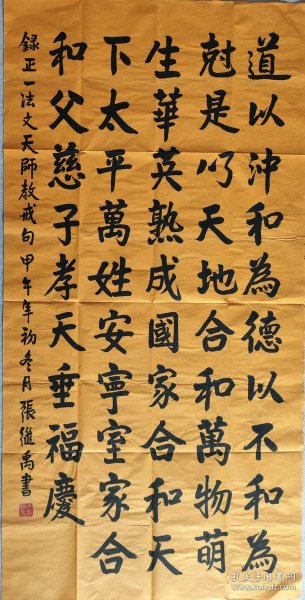 道以沖和為德以不和為
尅是以天地合和萬物萌
生華英熟成國家合和天
下太平萬姓安寧室家合
和父慈子孝天垂福慶
録正一法文天師教戒句甲午年初冬月張繼禹書
孔夫子旧书网